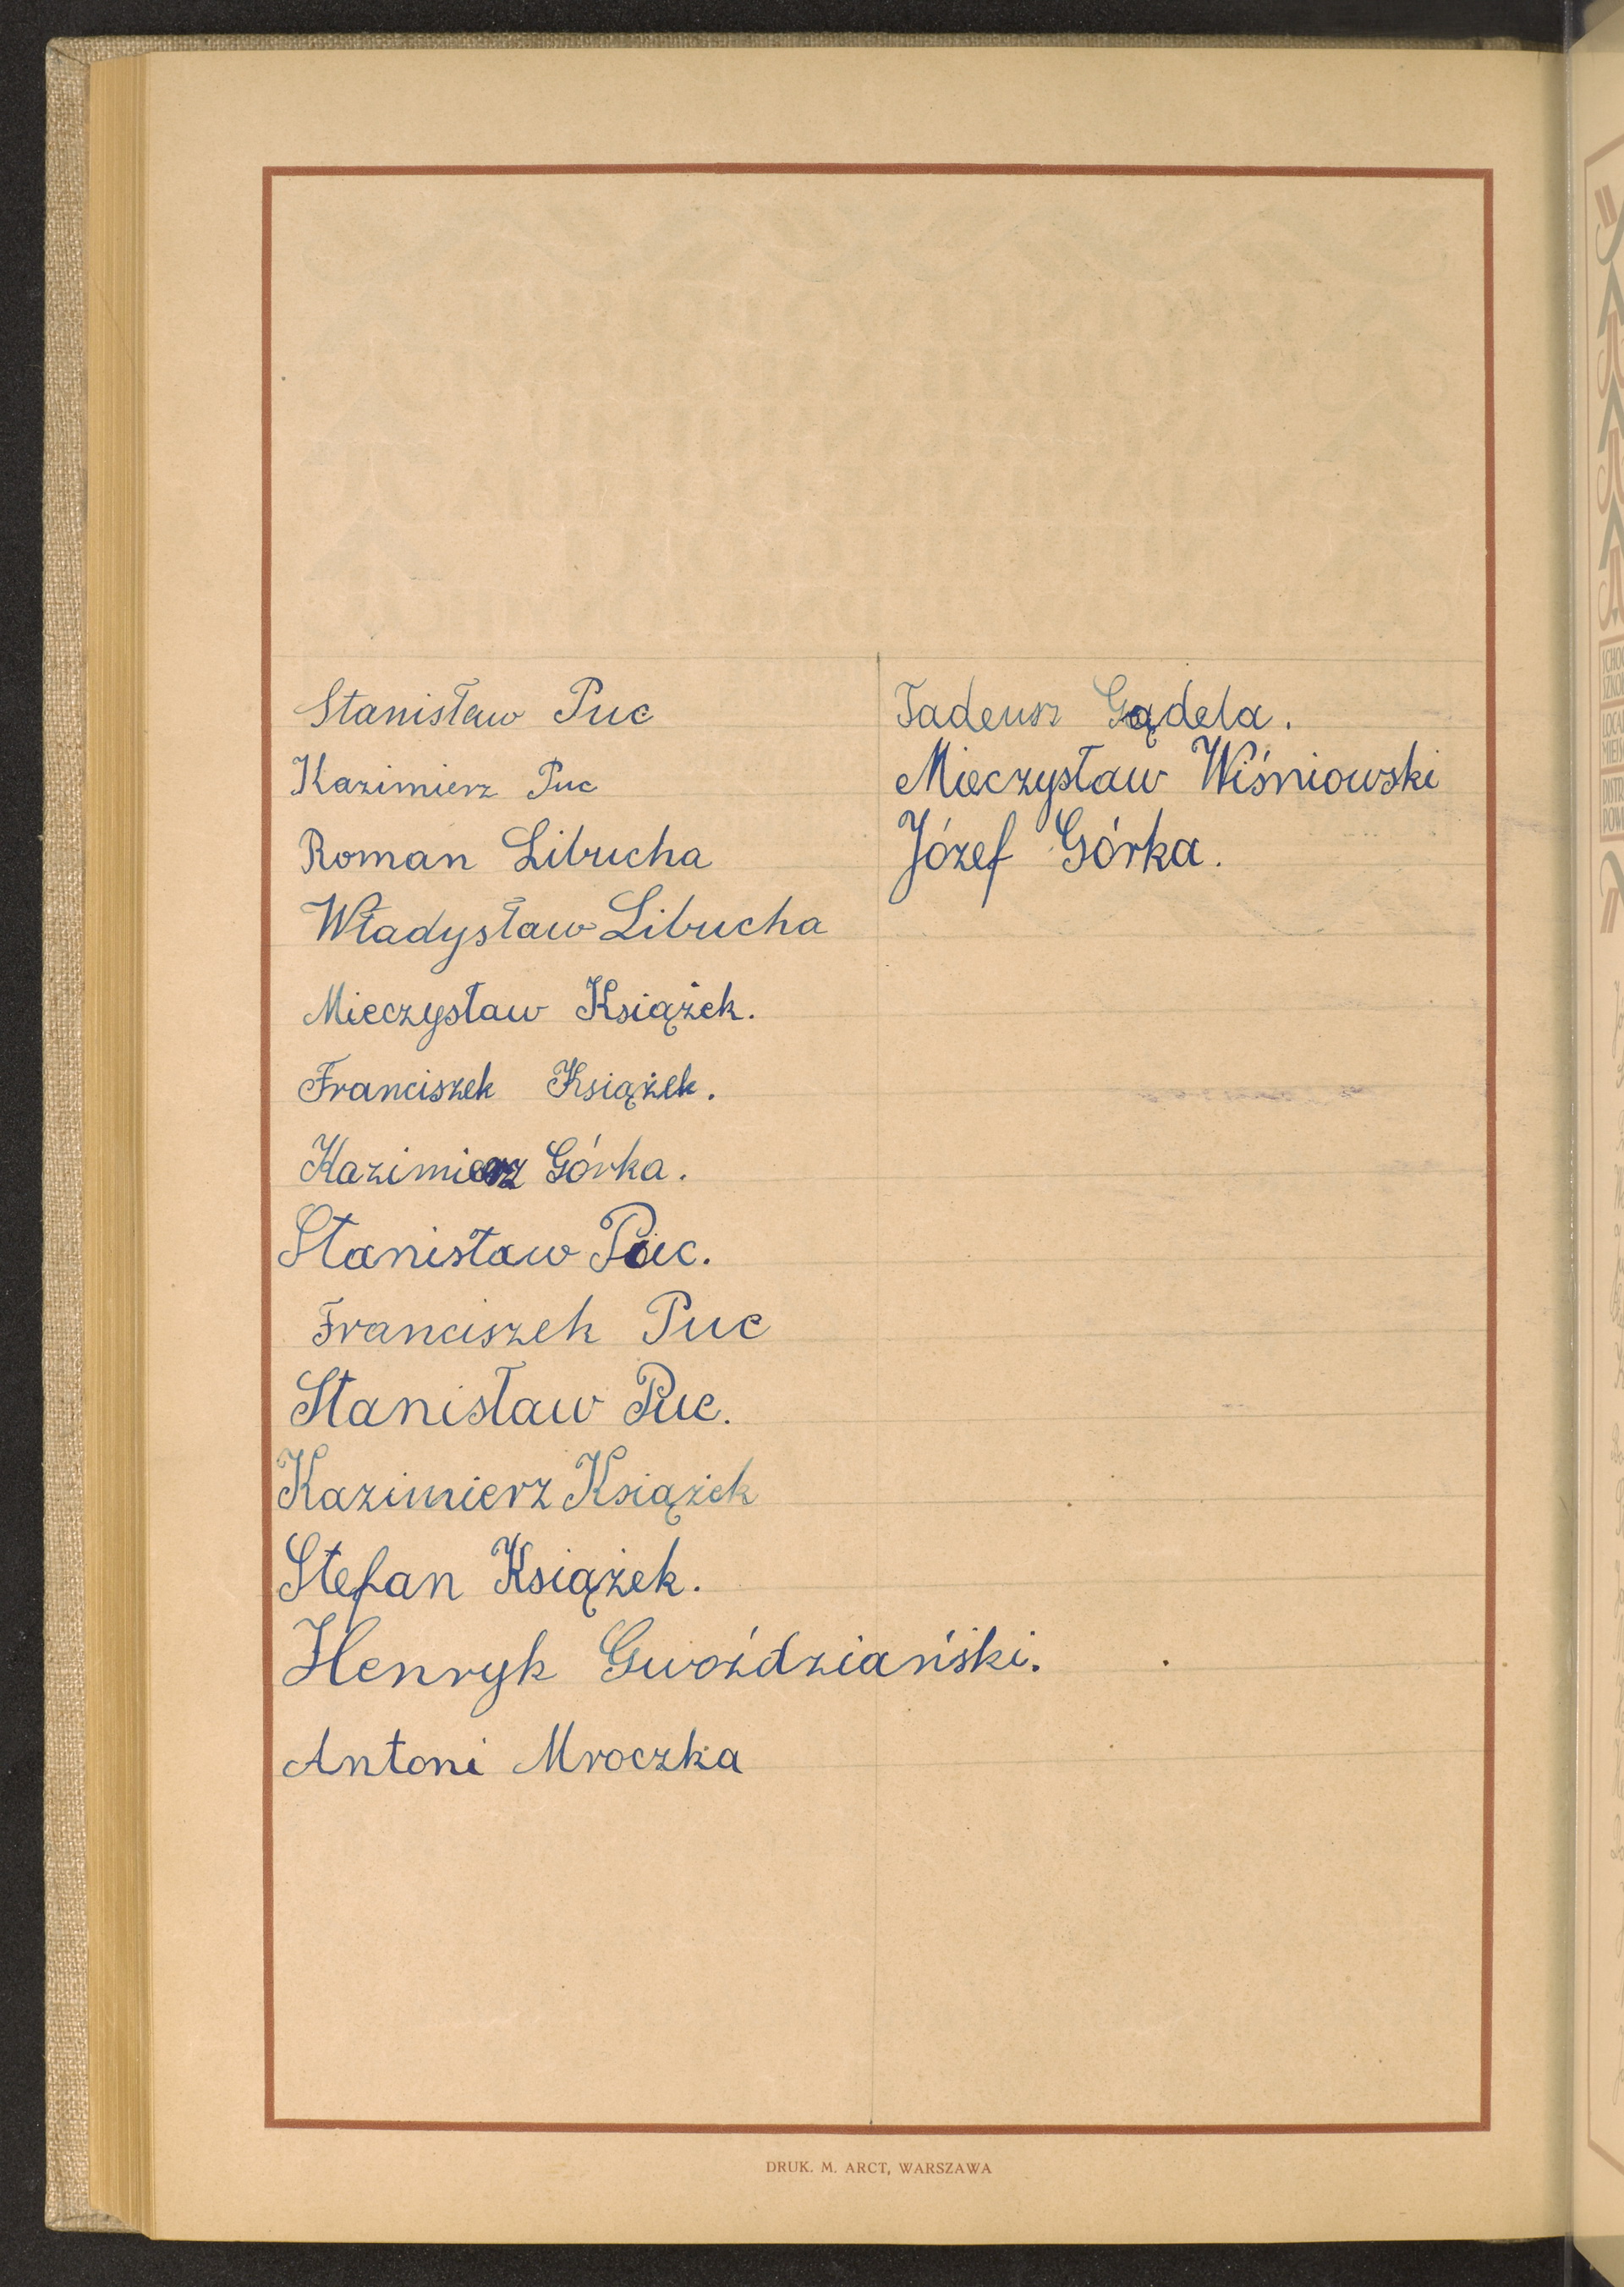 Stanisław Puc
Kazimierz Puc
Roman Libucha
Władysław Libucha
Mieczysław Książek.
Franciszek Książek.
Kazimierz Górka.
Stanisław Puc.
Franciszek Puc
Stanisław Puc.
Kazimierz Książek
Stefan Książek.
Henryk Gwoździański.
Antoni Mroczka
Tadeusz Gądela.
Mieczysław Wiśniowski
Józef Górka.
DRUK. M. ARCT, WARSZAWA